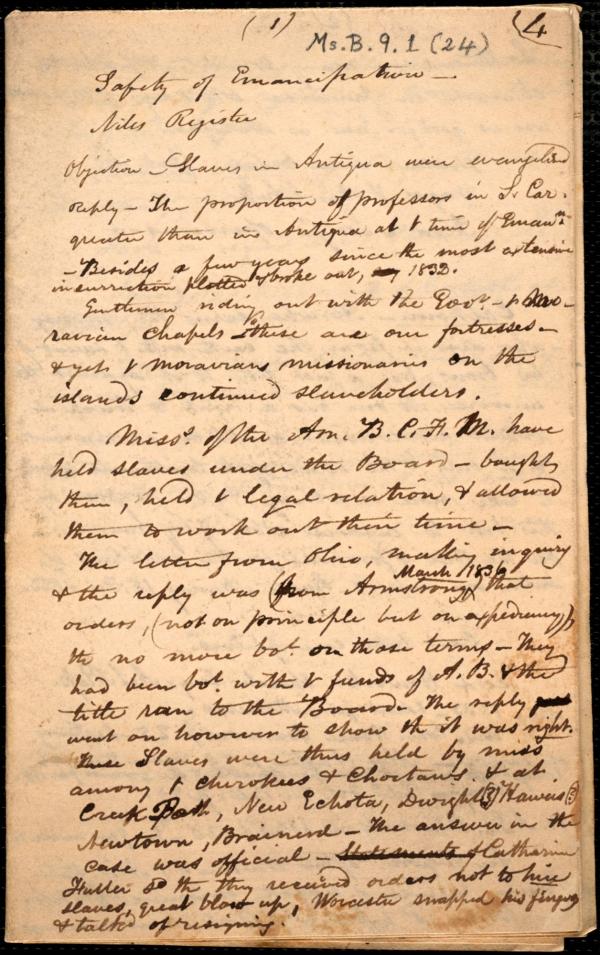 (1)
Ms.B.9.1 (24)
(4
Safety of Emancipation —
Niles Register
Objection — Slaves in Antigua were evangelized
Reply — The proportion of professors in S. Car.
greater than in Antigua at t time of Eman^n.
— Besides a few years since the most extensive
insurrection plotted & broke out, 1832.
Gentlemen riding out with the Gov^r. — t Mo-
ravian chapels "these are our fortresses —
& yet t moravians missionaries on the
islands continued slaveholders.
Miss^s. of the Am. B. C. F. M. have
held slaves under the Board — bought
them, held t legal relation, & allowed
them to work out their time —
The letter from Ohio, making inquiry
March 1836
& the reply was (from Armstrong) that
orders, (not on principle but on expediency),
th no more bo^t. on those terms — They
had been bo^t. with t funds of A. B. & the
title ran to the Board. The reply
went on however to show th it was right.
These Slaves were thus held by miss^s
among t Cherokees & Choctaws. & at
Creek Path, New Echota, Dwight (3) Haweis (3)
Newtown, Brainerd — The answer in the
case was official — Statements of Catharine
Fuller so th they received orders not to hire
slaves, great blow up, Worcester snapped his fingers
& talk^d of resigning.